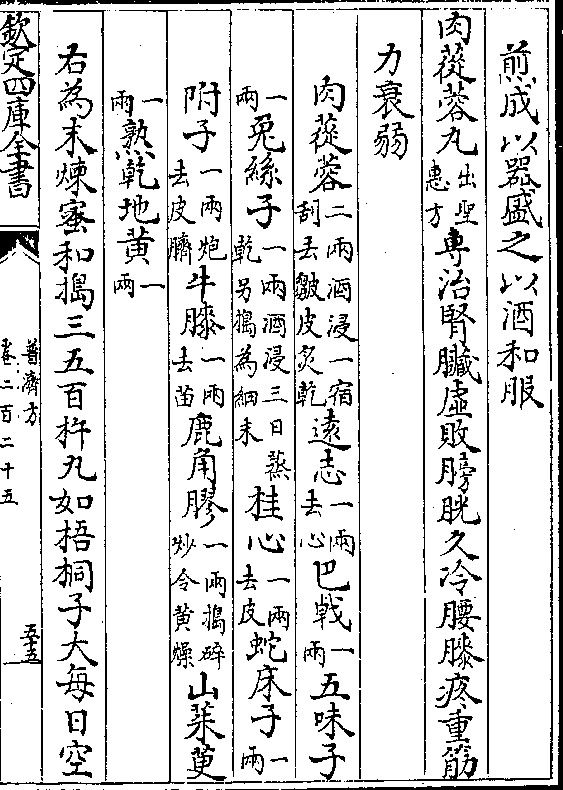 煎成以器盛之以酒和服
肉蓯蓉丸出聖惠方專治腎臟虛敗膀胱久冷腰膝疼重筋
力衰弱
肉蓯蓉二兩酒浸一宿刮去皺皮炙乾遠志一兩去心巴戟一兩五味子
一兩兎絲子一兩酒浸三日蒸乾另搗為細末桂心一兩去皮蛇床子一兩
附子一兩炮去皮臍牛膝一兩去苗鹿角膠一兩搗碎炒令黃燥山茱萸
一兩熟乾地黃一兩
右為末煉蜜和搗三五百杵丸如梧桐子大每日空
欽定四庫全書
普濟方
卷二百二十五
五十五